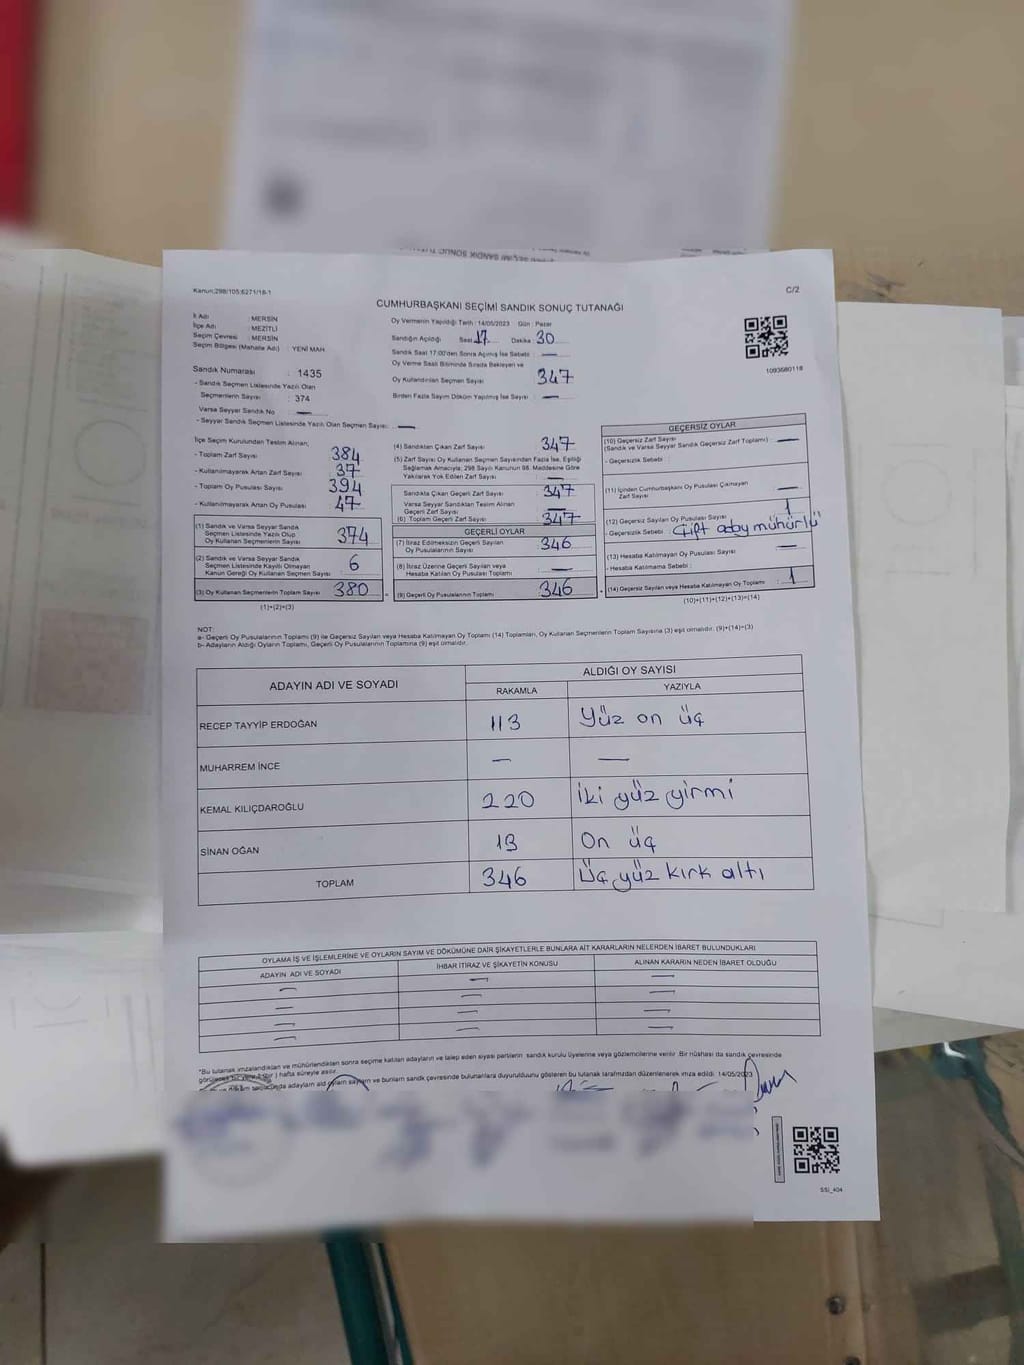 Kanun:298/105;6271/18-1
C/2
CUMHURBAŞKANI SEÇİMİ SANDIK SONUÇ TUTANAĞI
İl Adı : MERSİN
İlçe Adı : MEZİTLİ
Seçim Çevresi : MERSİN
Seçim Bölgesi (Mahalle Adı) : YENİ MAH.
Oy Vermenin Yapıldığı Tarih : 14/05/2023 Gün : Pazar
Sandığın Açıldığı Saat 17 Dakika : 30
Sandık Saat 17:00'den Sonra Açılmış İse Sebebi : —
Oy Verme Saati Bitiminde Sırada Bekleyen ve
Oy Kullandırılan Seçmen Sayısı 347
Birden Fazla Sayım Döküm Yapılmış İse Sayısı : —
1093680118
Sandık Numarası : 1435
- Sandık Seçmen Listesinde Yazılı Olan
Seçmenlerin Sayısı : 374
Varsa Seyyar Sandık No : —
- Seyyar Sandık Seçmen Listesinde Yazılı Olan Seçmen Sayısı : —
İlçe Seçim Kurulundan Teslim Alınan;
- Toplam Zarf Sayısı 384
- Kullanılmayarak Artan Zarf Sayısı 37
- Toplam Oy Pusulası Sayısı 394
- Kullanılmayarak Artan Oy Pusulası 47
(1) Sandık ve Varsa Seyyar Sandık
Seçmen Listesinde Yazılı Olup
Oy Kullanan Seçmenlerin Sayısı 374
(2) Sandık ve Varsa Seyyar Sandık
Seçmen Listesinde Kayıtlı Olmayan
Kanun Gereği Oy Kullanan Seçmen Sayısı 6
(3) Oy Kullanan Seçmenlerin Toplam Sayısı 380
(1)+(2)=(3)
(4) Sandıktan Çıkan Zarf Sayısı 347
(5) Zarf Sayısı Oy Kullanan Seçmen Sayısından Fazla İse, Eşitliği
Sağlamak Amacıyla; 298 Sayılı Kanunun 98. Maddesine Göre
Yakılarak Yok Edilen Zarf Sayısı —
Sandıkta Çıkan Geçerli Zarf Sayısı 347
Varsa Seyyar Sandıktan Teslim Alınan
Geçerli Zarf Sayısı —
(6) Toplam Geçerli Zarf Sayısı 347
GEÇERLİ OYLAR
(7) İtiraz Edilmeksizin Geçerli Sayılan
Oy Pusulalarının Sayısı 346
(8) İtiraz Üzerine Geçerli Sayılan veya
Hesaba Katılan Oy Pusulası Sayısı —
(9) Geçerli Oy Pusulalarının Toplamı 346
GEÇERSİZ OYLAR
(10) Geçersiz Zarf Sayısı
(Sandık ve Varsa Seyyar Sandık Geçersiz Zarf Toplamı) : —
- Geçersizlik Sebebi :
(11) İçinden Cumhurbaşkanı Oy Pusulası Çıkmayan
Zarf Sayısı —
(12) Geçersiz Sayılan Oy Pusulası Sayısı 1
- Geçersizlik Sebebi : Çift aday mühürlü
(13) Hesaba Katılmayan Oy Pusulası Sayısı —
- Hesaba Katılmama Sebebi :
(14) Geçersiz Sayılan veya Hesaba Katılmayan Oy Toplamı 1
(10)+(11)+(12)+(13)=(14)
NOT:
a- Geçerli Oy Pusulalarının Toplamı (9) ile Geçersiz Sayılan veya Hesaba Katılmayan Oy Toplamı (14) Toplamları, Oy Kullanan Seçmenlerin Toplam Sayısına (3) eşit olmalıdır. (9)+(14)=(3)
b- Adayların Aldığı Oyların Toplamı, Geçerli Oy Pusulalarının Toplamına (9) eşit olmalıdır.
ADAYIN ADI VE SOYADI
ALDIĞI OY SAYISI
RAKAMLA YAZIYLA
RECEP TAYYİP ERDOĞAN 113 Yüz on üç
MUHARREM İNCE — —
KEMAL KILIÇDAROĞLU 220 İki yüz yirmi
SİNAN OĞAN 13 On üç
TOPLAM 346 Üç yüz kırk altı
OYLAMA İŞ VE İŞLEMLERİNE VE OYLARIN SAYIM VE DÖKÜMÜNE DAİR ŞİKAYETLERLE BUNLARA AİT KARARLARIN NELERDEN İBARET BULUNDUKLARI
ADAYIN ADI VE SOYADI İHBAR İTİRAZ VE ŞİKAYETİN KONUSU ALINAN KARARIN NEDEN İBARET OLDUĞU
— — —
— — —
— — —
— —
*Bu tutanak imzalandıktan ve mühürlendikten sonra seçime katılan adayların ve talep eden siyasi partilerin sandık kurulu üyelerine veya gözlemcilerine verilir. Bir nüshası da sandık çevresinde
görülecek bir yere hafta süreyle asılır.
sayısını ve bunların sandık çevresinde bulunanlara duyurulduğunu gösteren bu tutanak tarafımızdan düzenlenerek imza edildi. 14/05/2023
SSİ_404